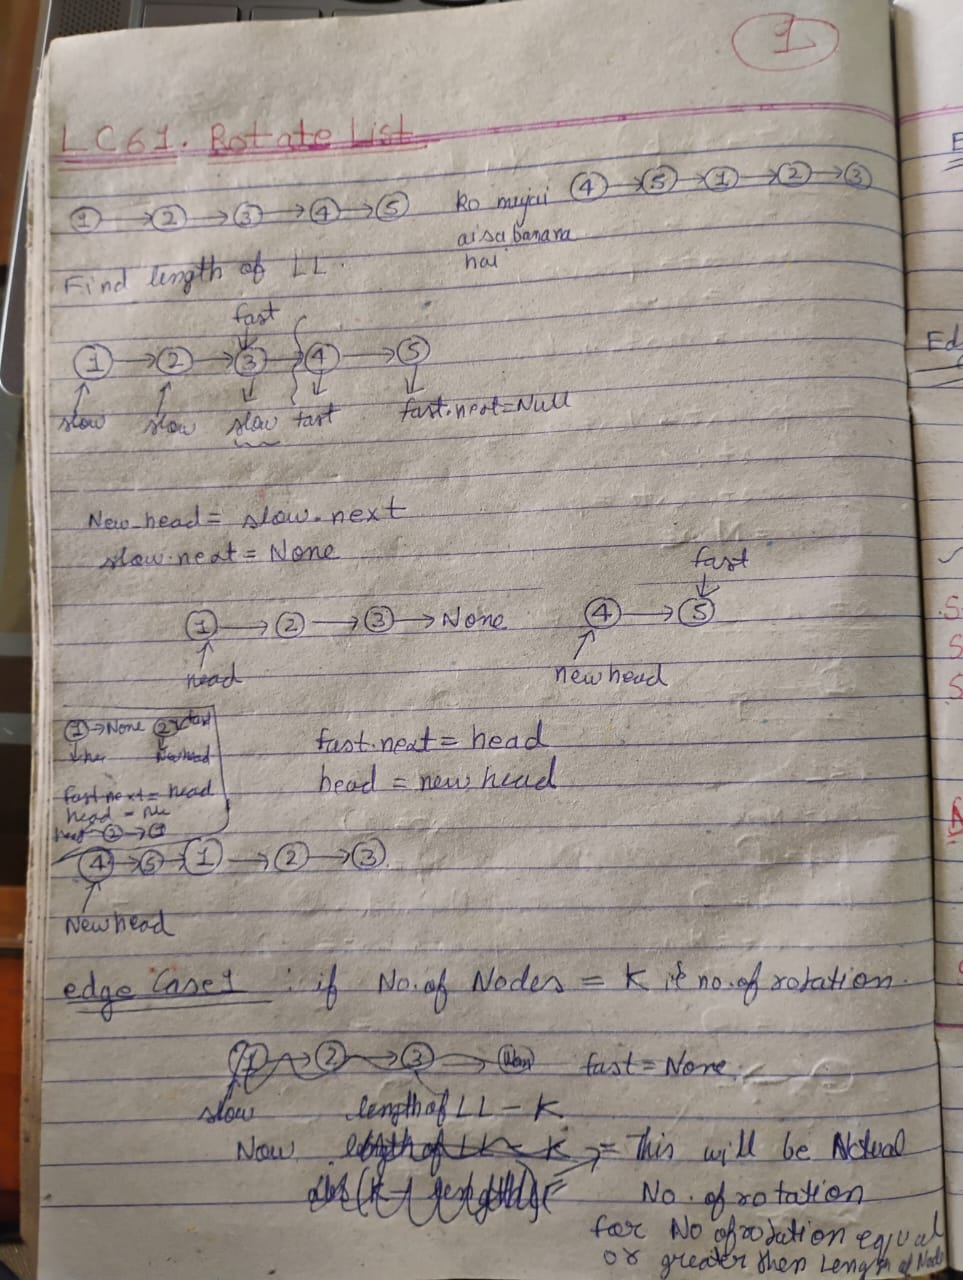 1
LC61. Rotate List
1 → 2 → 3 → 4 → 5 ko mujai 4 → 5 → 1 → 2 → 3
aisa banana
hai
Find length of LL.
fast
1 → 2 → 3 → 4 → 5
slow slow slow fast fast.next=Null
New_head = slow.next
slow.next = None
fast
1 → 2 → 3 → None 4 → 5
head new head
1 → None 2 fast
New head
fast.next = head
head = new head
fast.next = head
head =
2 → 1
4 → 5 → 1 → 2 → 3
New head
edge Case 1 : if No. of Nodes = K no. of rotation.
1 → 2 → 3 → fast = None.
slow length of LL - K
Now length of LL - K = This will be Actual
No. of rotation
for No of rotation equal
or greater then Length of Node
E
Ed
S
S
S